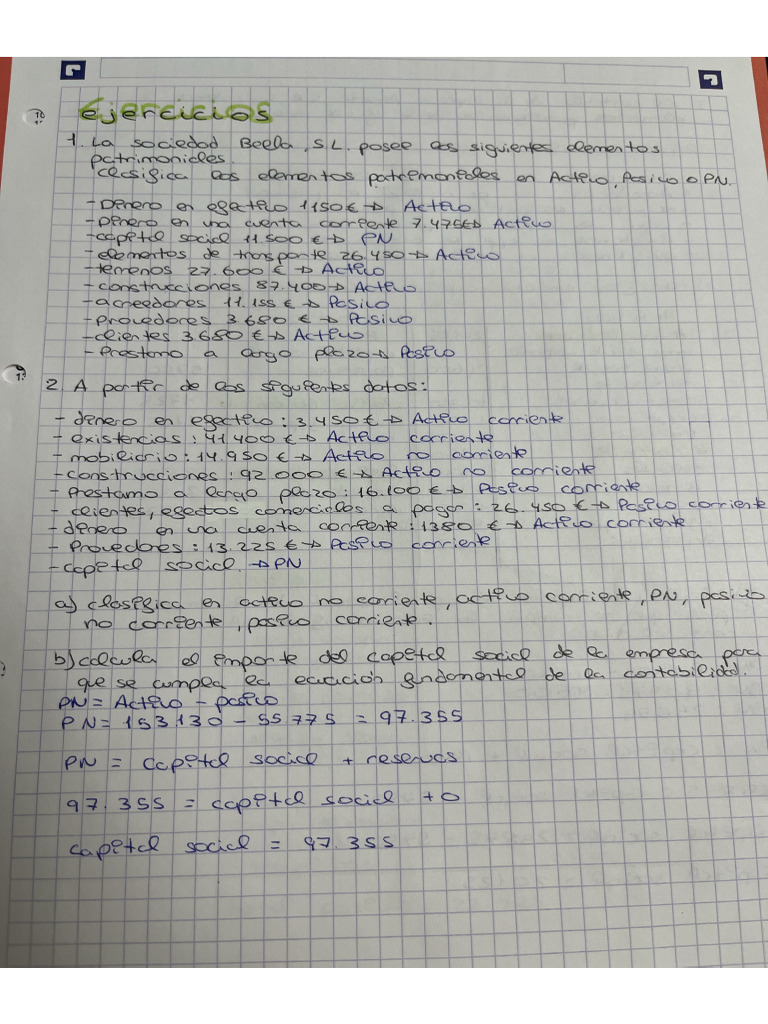 Ejercicios
1. La sociedad Beella, S.L. posee los siguientes elementos
patrimoniales.
clasifica los elementos patrimoniales en Activo, Pasivo o PN.
- Dinero en efectivo 1150€ → Activo
- Dinero en una cuenta corriente 7.475€→ Activo
- capital social 11.500 € → PN
- elementos de transporte 26.450 → Activo
- terrenos 27.600 € → Activo
- construcciones 87.400 → Activo
- acreedores 11.155 € → Pasivo
- provedores 3680 € → Pasivo
- clientes 3680 € → Activo
- Préstamo a largo plazo → Pasivo
2. A partir de los siguientes datos:
- dinero en efectivo : 3.450 € → Activo corriente
- existencias : 41.400 € → Activo corriente
- mobiliario : 14.950 € → Activo no corriente
- construcciones : 92 000 € → Activo no corriente
- Préstamo a largo plazo : 16.100 € → Pasivo corriente
- clientes, efectos comerciales a pagar : 26.450 € → Pasivo corriente
- dinero en una cuenta corriente : 1380 € → Activo corriente
- Provedores : 13.225 € → Pasivo corriente
- capital social → PN
a) clasifica en activo no corriente, activo corriente, PN, pasivo
no corriente, pasivo corriente.
b) calcula el importe del capital social de la empresa para
que se cumpla la ecuación fundamental de la contabilidad.
PN = Activo - pasivo
PN = 153.130 - 55 775 = 97.355
PN = capital social + reservas
97.355 = capital social + 0
capital social = 97.355